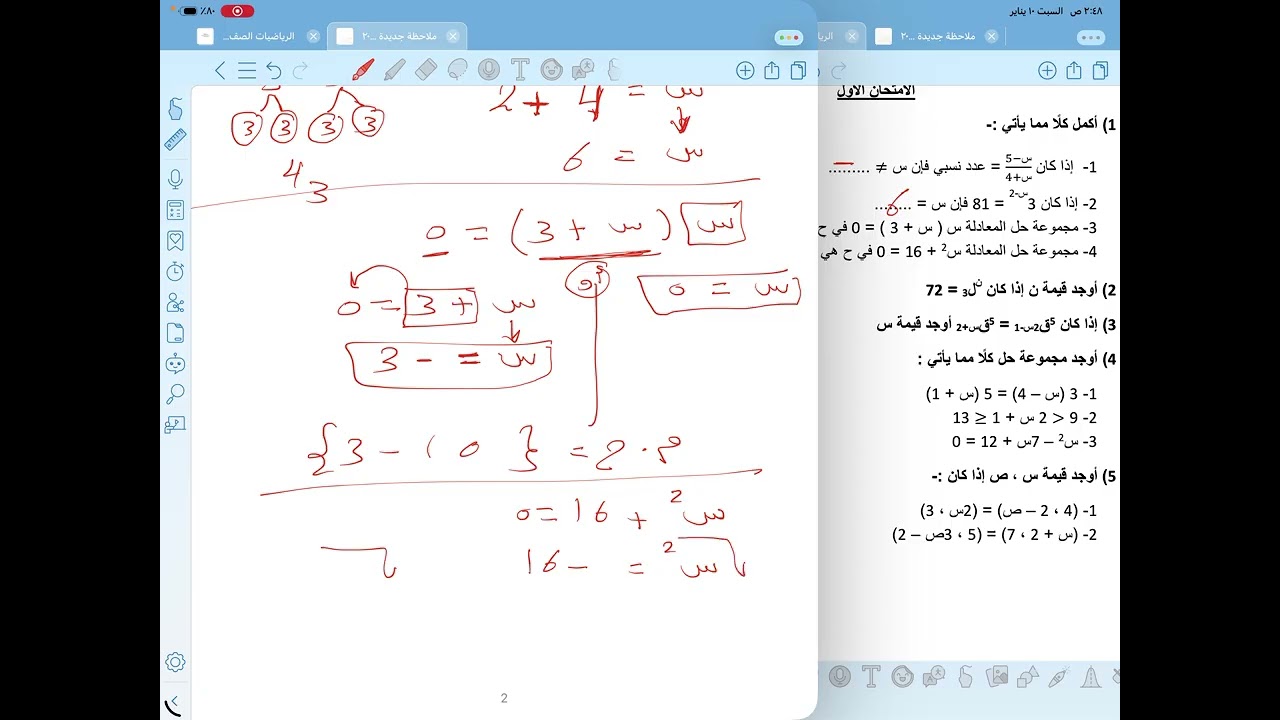 ٢:٤٨ ص السبت ١٠ يناير
٨٠٪
الرياضيات الصف...
ملاحظة جديدة ...٢٠
الريا
ملاحظة جديدة ...٢٠
س = 4 + 2
س = 6
3 3 3 3
3 4
س (س + 3) = 0
س = 0
أو
س + 3 = 0
س = - 3
م.ح = { 0 ، - 3 }
س2 + 16 = 0
س2 = - 16
2
الامتحان الاول
1) أكمل كلًا مما يأتي :-
1- إذا كان س–5/س+4 = عدد نسبي فإن س ≠ .........
2- إذا كان 3س-2 = 81 فإن س = ........
6
3- مجموعة حل المعادلة س ( س + 3 ) = 0 في ح
4- مجموعة حل المعادلة س2 + 16 = 0 في ح هي
2) أوجد قيمة ن إذا كان نل3 = 72
3) إذا كان 5ق2س-1 = 5قس+2 أوجد قيمة س
4) أوجد مجموعة حل كلًا مما يأتي :
1- 3 (س – 4) = 5 (س + 1)
2- 9 < 2 س + 1 ≤ 13
3- س2 – 7س + 12 = 0
5) أوجد قيمة س ، ص إذا كان :-
1- (4 ، 2 – ص) = (2س ، 3)
2- (س + 2 ، 7) = (5 ، 3ص – 2)